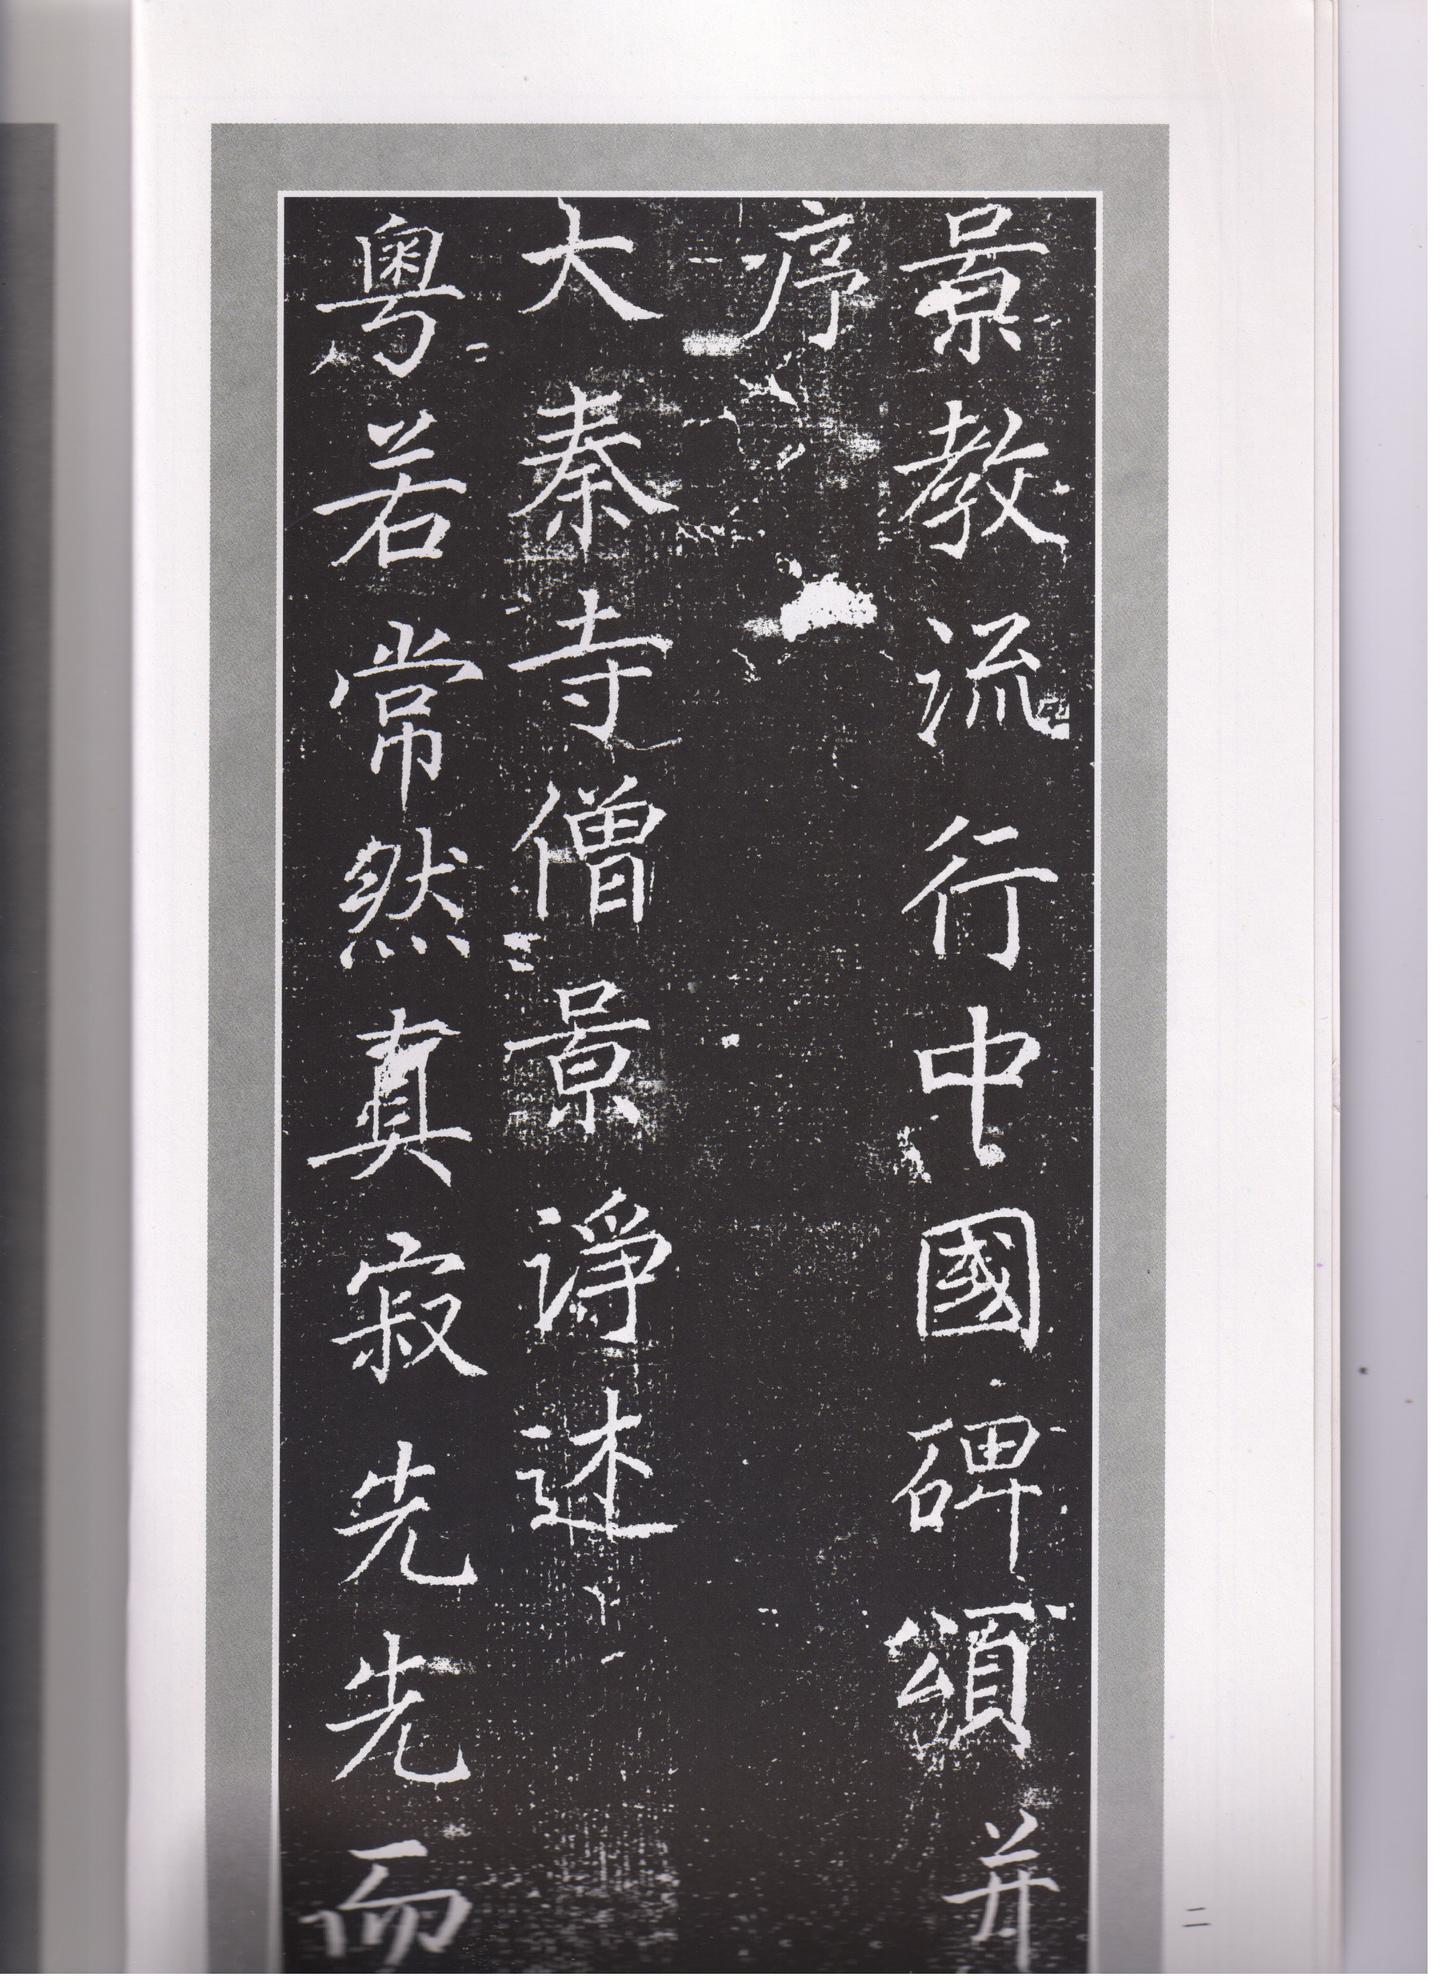 景教流行中國碑頌并
序
大秦寺僧景淨述
粵若常然真寂先先而
二